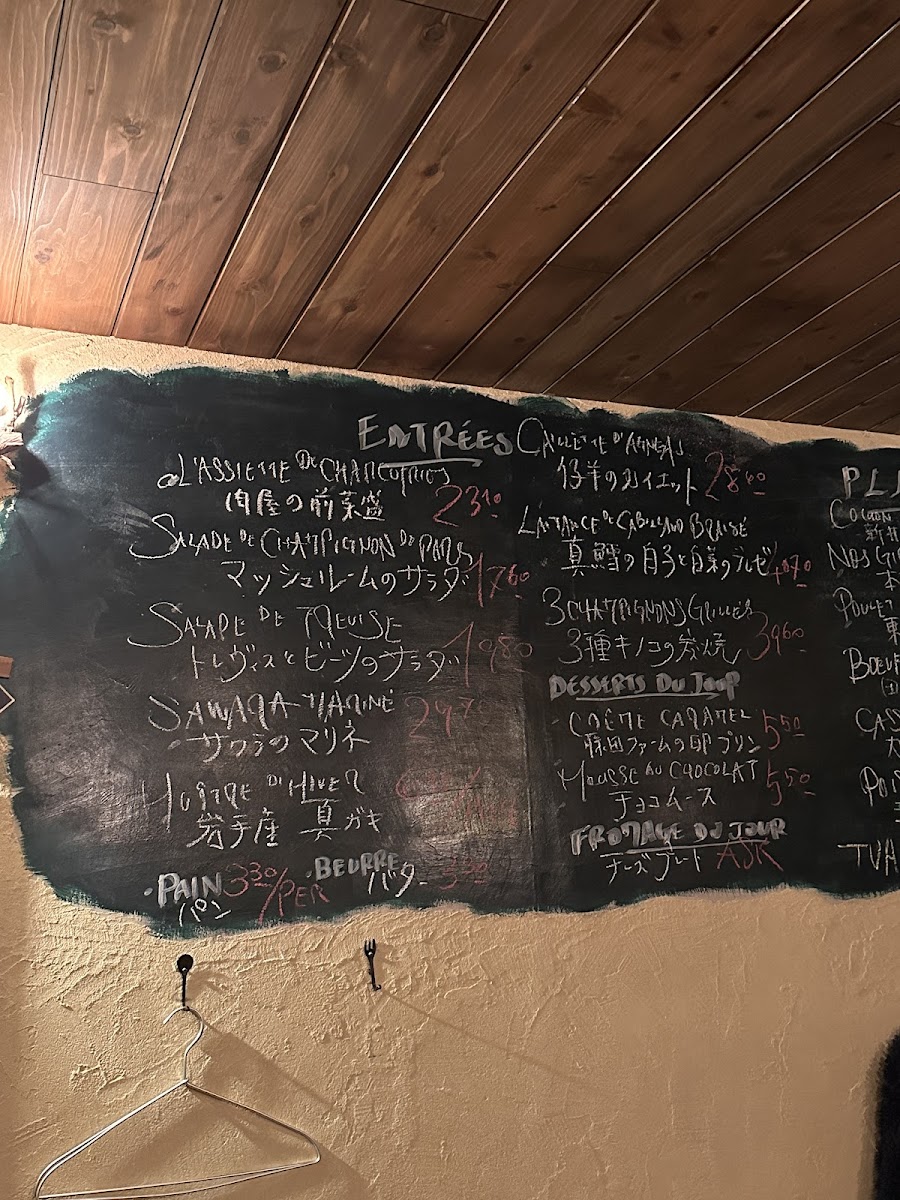 ENTRÉES
L'ASSIETTE DE CHARCUTERIES
肉屋の前菜盛 2310
SALADE DE CHAMPIGNON DE PARIS
マッシュルームのサラダ 1760
SALADE DE TREVISE
トレヴィスとビーツのサラダ 1980
SAWARA MARINÉ
サワラのマリネ
HUÎTRE D'HIVER
岩手産 真ガキ
・PAIN 330/PER
パン
・BEURRE
バター
CAILLETTE D'AGNEAU
仔羊のカイエット 2860
L'AITANCE DE CABILLAUD BRAISÉ
真鱈の白子と白菜のブレゼ
3 CHAMPIGNONS GRILLÉS
3種キノコの炭焼 3960
DESSERTS DU JOUR
・CRÈME CARAMEL 550
藤田ファームの卵プリン
・MOUSSE AU CHOCOLAT 550
チョコムース
FROMAGE DU JOUR
チーズプレート ASK
PL
COCHON
NOS
POULET
BOEUF
CASS